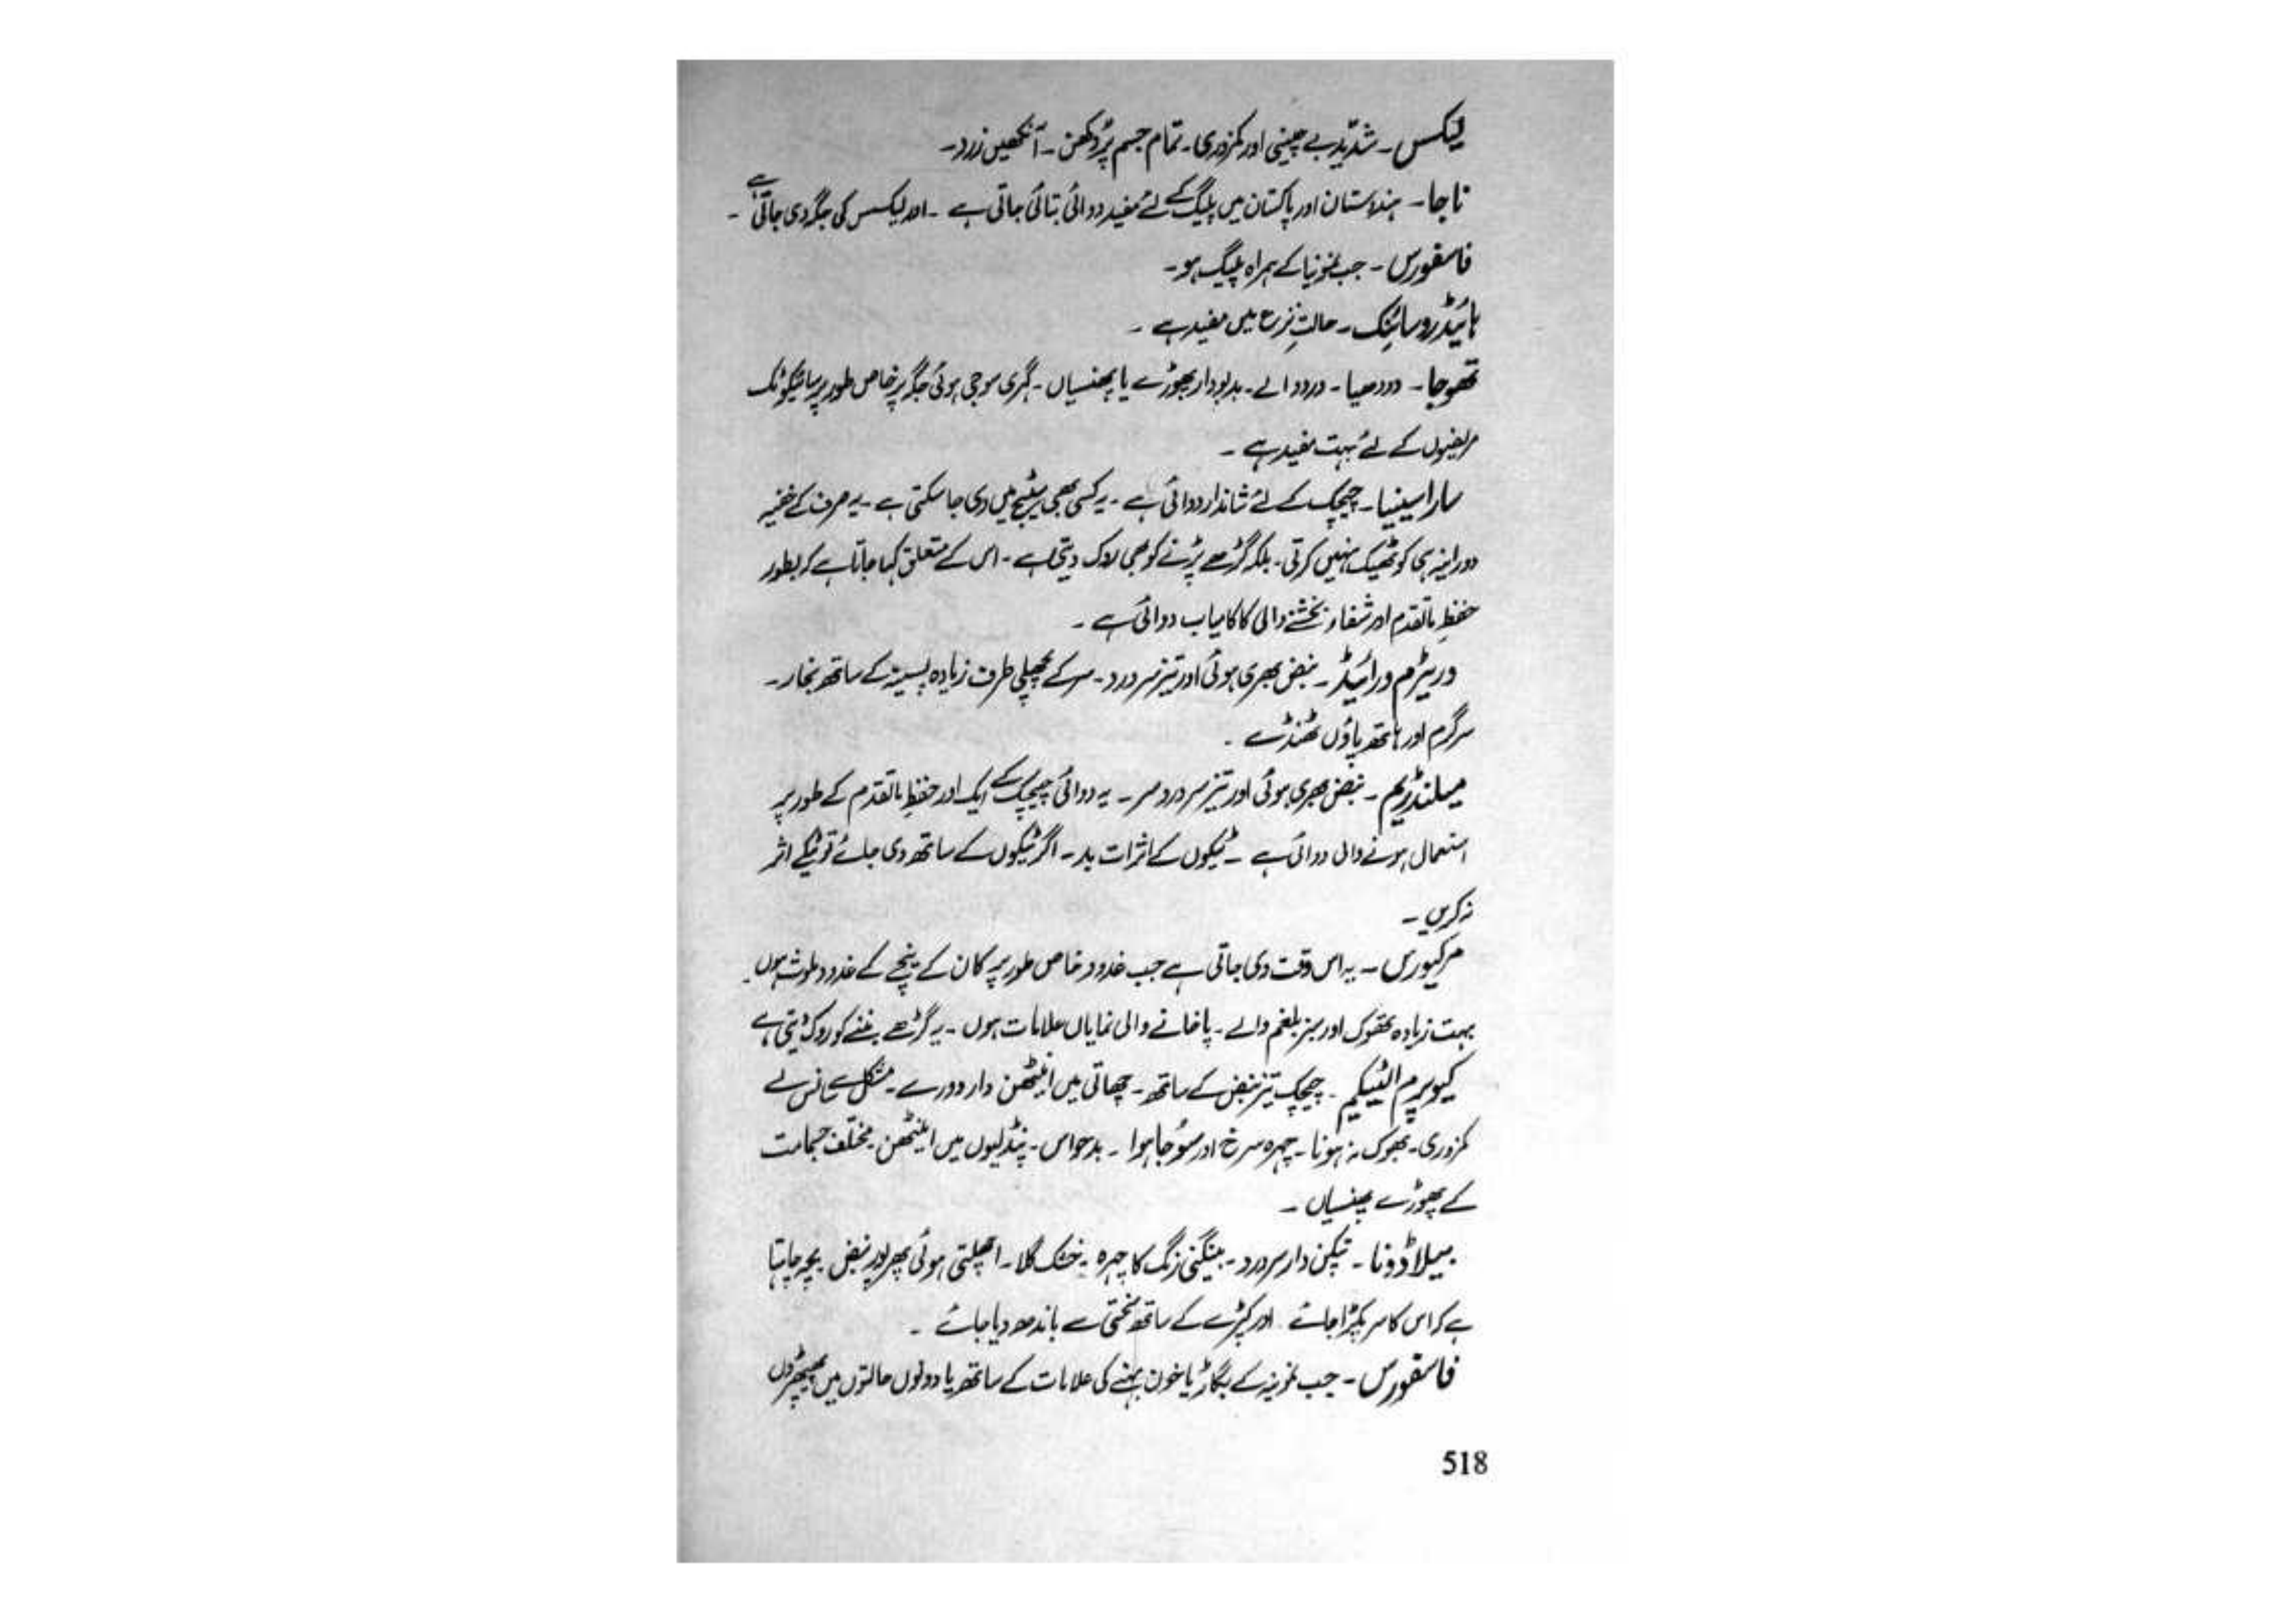 لیکس ۔ شدید بے چینی اور کمزوری۔ تمام جسم پر دکھن ۔ آنکھیں زرد۔
ناجا ۔ ہندوستان اور پاکستان میں پلیگ کے لئے مفید دوائی بتائی جاتی ہے ۔ اور لیکسس کی جگہ دی جاتی ہے ۔
فاسفورس ۔ جب نمونیا کے ہمراہ پلیگ ہو۔
ہائیڈروسائنک ۔ حالتِ نزع میں مفید ہے ۔
تھوجا ۔ دودھیا ۔ درد والے ۔ بدبودار پھوڑے یا پھنسیاں ۔ گہری سوجی ہوئی جگہ پر خاص طور پر سائیکوٹک
مریضوں کے لئے بہت مفید ہے ۔
ساراسینیا ۔ چیچک کے لئے شاندار دوائی ہے ۔ یہ کسی بھی سٹیج میں دی جا سکتی ہے ۔ یہ صرف کے خفیہ
دورانیہ ہی کو ٹھیک نہیں کرتی۔ بلکہ گڑھے پڑنے کو بھی روک دیتی ہے ۔ اس کے متعلق کہا جاتا ہے کہ بطور
حفظِ ماتقدم اور شفاء بخشنے والی کا کامیاب دوائی ہے ۔
وریٹرم ورائیڈ ۔ نبض بھری ہوئی اور تیز سر درد ۔ سر کے پچھلی طرف زیادہ پسینہ کے ساتھ بخار ۔
سر گرم اور ہاتھ پاؤں ٹھنڈے ۔
میلنڈریم ۔ نبض بھری ہوئی اور تیز سر درد سر ۔ یہ دوائی چیچک کے ایک اور حفظِ ماتقدم کے طور پر
استعمال ہونے والی دوائی ہے ۔ ٹیکوں کے اثرات بد ۔ اگر ٹیکوں کے ساتھ دی جائے تو ٹیکے اثر
نہ کریں ۔
مرکیورس ۔ یہ اس وقت دی جاتی ہے جب غدود خاص طور پر کان کے نیچے کے غدود ملوث ہوں۔
بہت زیادہ تھوک اور سبز بلغم والے ۔ پاخانے والی نمایاں علامات ہوں ۔ یہ گڑھے بننے کو روک دیتی ہے
کیوپرم الٹیکم ۔ چیچک تیز نبض کے ساتھ ۔ چھاتی میں اینٹھن دار دورے ۔ مشکل سے سانس لے
کمزوری ۔ بھوک نہ ہونا ۔ چہرہ سرخ اور سُوجا ہوا ۔ بدحواس ۔ پنڈلیوں میں اینٹھن ۔ مختلف جسامت
کے پھوڑے پھنسیاں ۔
بیلاڈونا ۔ تپکن دار سر درد ۔ بینگنی رنگ کا چہرہ ۔ خشک گلا ۔ اچھلتی ہوئی بھرپور نبض بچہ چاہتا
ہے کہ اس کا سر پکڑا جائے اور کپڑے کے ساتھ سختی سے باندھ دیا جائے ۔
فاسفورس ۔ جب نمونیہ کے بگاڑ یا خون بہنے کی علامات کے ساتھ یا دونوں حالتوں میں پھیپھڑوں
518